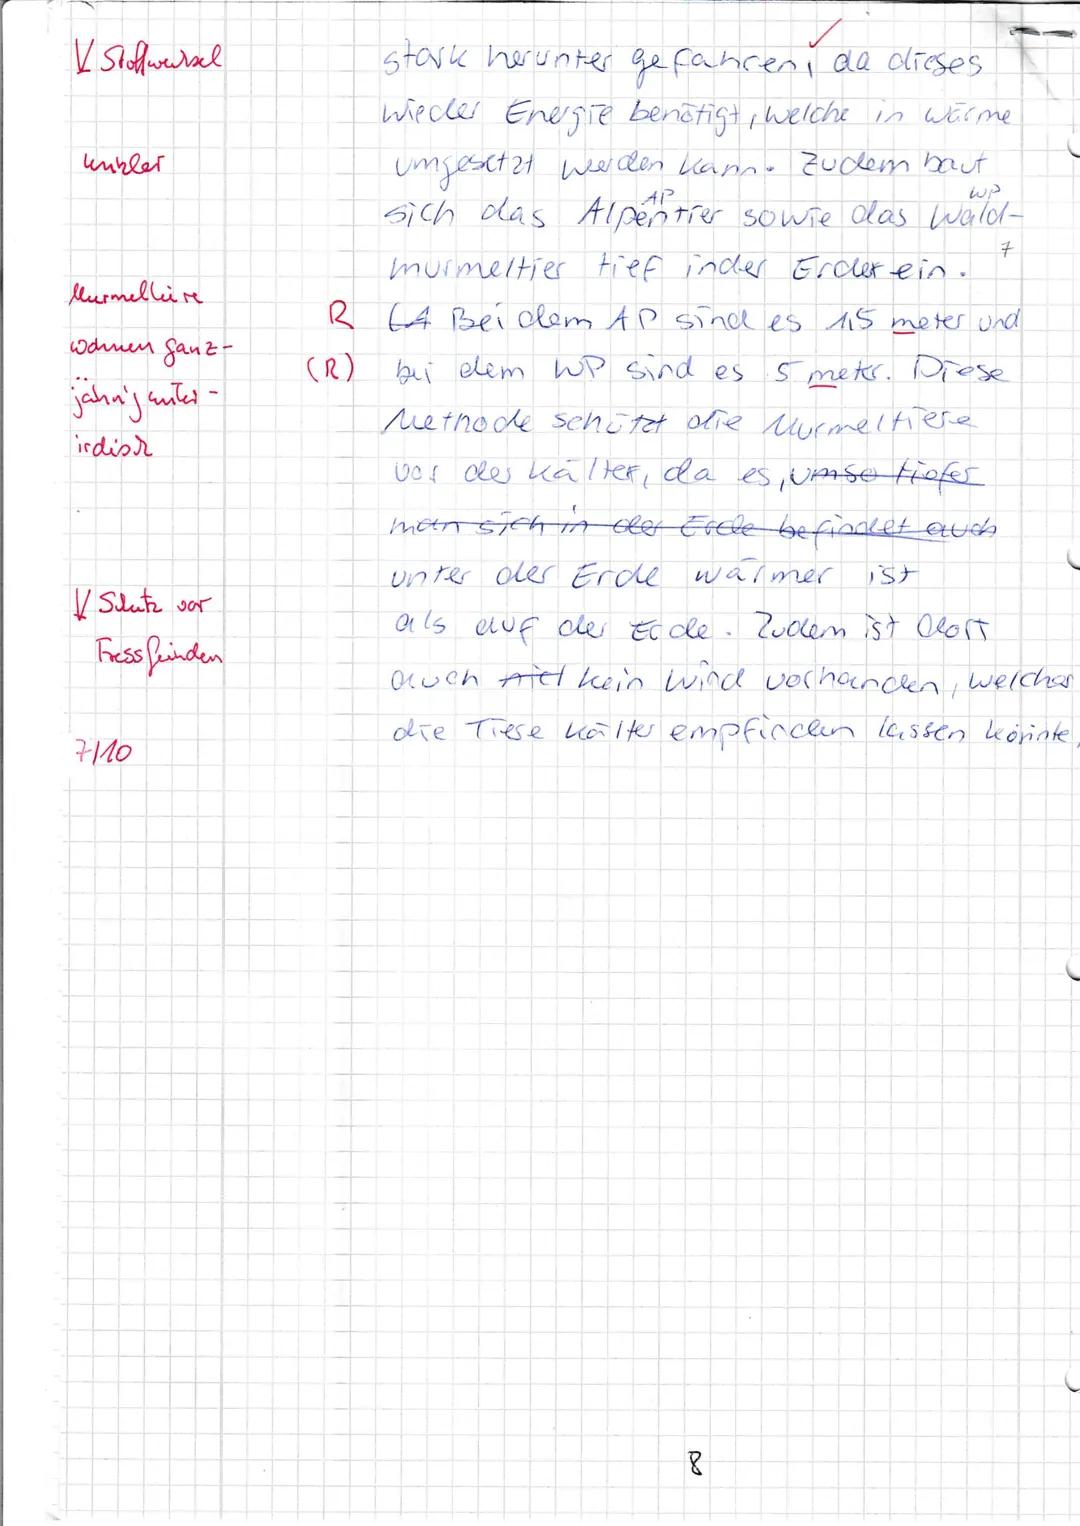 √ Stoffwechsel
unklar
Murmeltiere
wohnen ganz-
jährig unter-
irdisch
√ Schutz vor
Fressfeinden
7/10
stark herunter gefahren, da dieses
wieder Energie benötigt, welche in wärme
umgesetzt werden kann. Zudem baut
AP WP
sich das Alpentier sowie das Wald-
7
murmeltier tief inder Erder ein.
R Bei dem AP sind es 1,5 meter und
(R) bei dem WP sind es 5 meter. Diese
Methode schützt die Murmeltiere
vor der kälter, da es, umso tiefer
man sich in der Erde befindet auch
unter der Erde wärmer ist
als auf der Erde. Zudem ist dort
auch kein Wind vorhanden, welcher
die Tiere kälter empfinden lassen könnte.
8